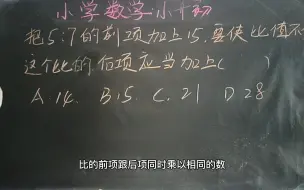 小学数学小升初
把5:7的前项加上15,要使比值不
这个比的后项应当加上( )
A 14. B.15. C.21 D 28
比的前项跟后项同时乘以相同的数